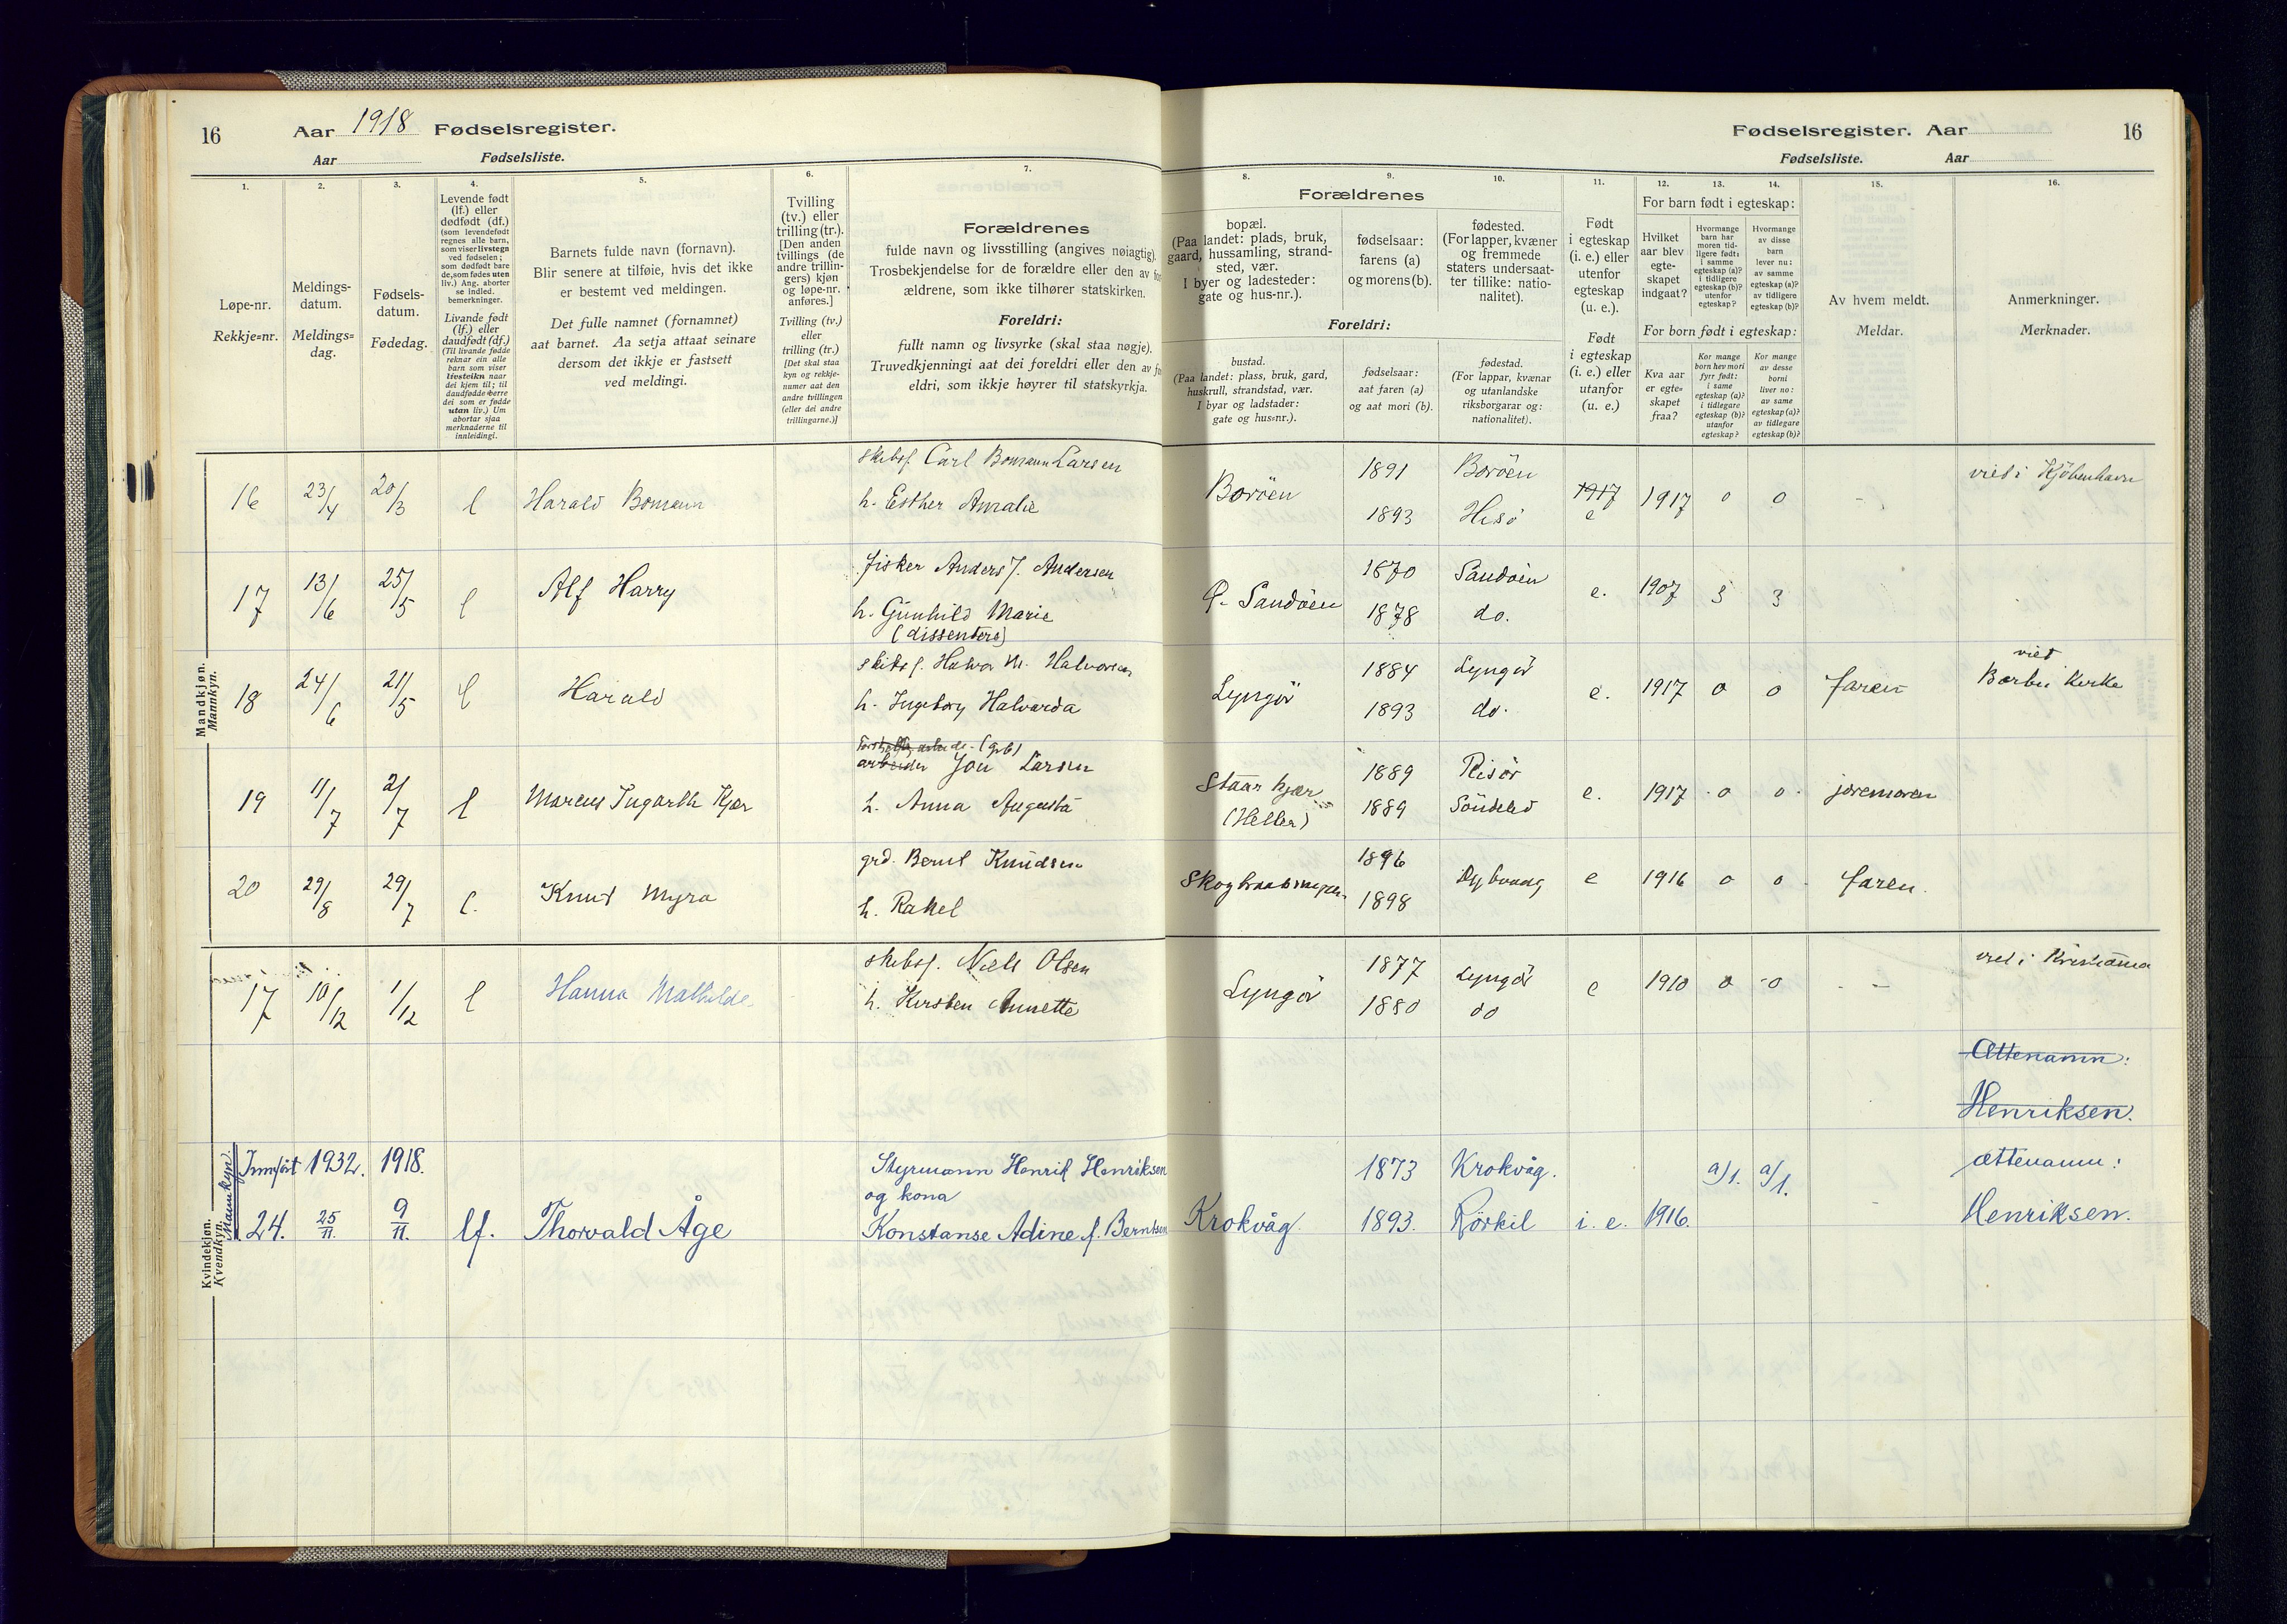 16
Aar 1918 Fødselsregister.
Aar Fødselsliste.
Fødselsregister. Aar
16
Fødselsliste. Aar
1.
Løpe-nr.
Rekkje=nr.
2.
Meldings-
datum.
Meldings=
dag.
3.
Fødsels-
datum.
Fødedag.
4.
Levende født
(lf.) eller
dødfødt (df.)
(som levendefødt
regnes alle barn,
som viser livstegn
ved fødselen;
som dødfødt bare
de, som fødes uten
liv.) Ang. aborter
se indled.
bemerkninger.
Livande født
(lf.) eller
daudfødt (df.)
(Til livande fødde
reknar ein alle
barn som viser
livsteikn naar
dei kjem til; til
daudfødde berre
dei som er fødde
utan liv.) Um
abortar sjaa
merknaderne til
innleidingi.
5.
Barnets fulde navn (fornavn).
Blir senere at tilføie, hvis det ikke
er bestemt ved meldingen.
Det fulle namnet (fornamnet)
aat barnet. Aa setja attaat seinare
dersom det ikkje er fastsett
ved meldingi.
6.
Tvilling
(tv.) eller
trilling (tr.).
[Den anden
tvillings (de
andre trillin-
gers) kjøn
og løpe-nr.
anføres.]
Tvilling (tv.)
eller
trilling (tr.)
[Det skal staa
kyn og rekkje-
numer aat den
andre tvillingen
(eller dei andre
trillingarne.)]
7.
Forældrenes
fulde navn og livsstilling (angives nøiagtig).
Trosbekjendelse for de forældre eller den av for
ældrene, som ikke tilhører statskirken.
Foreldri:
fullt namn og livsyrke (skal staa nøgje).
Truvedkjenningi aat dei foreldri eller den av for
eldri, som ikkje høyrer til statskyrkja.
Forældrenes
8.
bopæl.
(Paa landet: plads, bruk,
gaard, hussamling, strand-
sted, vær.
I byer og ladesteder:
gate og hus-nr.).
9.
fødselsaar:
farens (a)
og morens (b).
10.
fødested.
(For lapper, kvæner
og fremmede
staters undersaat-
ter tillike: natio-
nalitet).
Foreldri:
bustad.
(Paa landet: plass, bruk, gard,
huskrull, strandstad, vær.
I byar og ladstader:
gate og hus=nr.).
fødselsaar:
aat faren (a)
og aat mori (b).
fødestad.
(For lappar, kvænar
og utanlandske
riksborgarar og:
nationalitet).
11.
Født
i egteskap
(i. e.) eller
utenfor
egteskap
(u. e.).
Født
i egteskap
(i. e.) eller
utanfor
(u. e.)
12. 13. 14.
For barn født i egteskap:
Hvilket
aar blev
egte-
skapet
indgaat?
Hvormange
barn har
moren tid-
ligere født:
i samme
egteskap (a)?
i tidligere
egteskap (b)?
utenfor
egteskap?
Hvormange
av disse
barn
lever nu:
av samme
egteskap (a)?
av tidligere
egteskap (b)?
For born født i egteskap:
Kva aar
er egte=
skapet
fraa?
Kor mange
born hev mori
fyrr født:
i same
egteskap (a)?
i tidlegare
egteskap (b)?
utanfor
egteskap?
Kor mange
av desse
borni
liver no:
av same
egteskap (a)?
av tidlegare
egteskap (b)?
15.
Av hvem meldt.
Meldar.
16.
Anmerkninger.
Merknader.
Mandkjøn.
Mannkyn.
16 23/4 20/3 l Harald Bomann
skibsf. Carl Bomann Larsen
h. Esther Amalie
Borøen 1891 Borøen
1893 Hisø
1917
e 1917 0 0 -
viet i Kjøbenhavn
17 13/6 25/5 l Alf Harry
fisker Anders J. Andersen
h. Gunhild Marie
(dissentere)
Sandøen 1870 Sandøen
1878 do.
e. 1907 3 3
18 24/6 21/5 l Harald
skibsf. Halvor M. Halvorsen
h. Ingeborg Halvarda
Lyngör 1884 Lyngör
1893 do.
e. 1917 0 0 faren
viet
Barbu Kirke
19 11/7 2/7 l Marcus Ingarth Kjær
arbeider Jon Larsen
h. Anna Augusta
Staarkjær
(Heller)
1889 Risör
1889 Söndeled
e. 1917 0 0 joremoren
20 29/8 29/7 l. Knut Myra
grd. Bernt Knudsen
h. Rakel
1896
1898
Dybvaag e 1916 0 0 faren.
Kvindekjøn.
Kvendkyn.
17 10/12 1/12 l Hanna Mathilde
skibsf. Niels Olsen
h. Kirsten Annette
Lyngör 1877 Lyngör
1880 do
e 1910 0 0 - -
viet i Kristiania
Ættenamn:
Henriksen.
Mannkyn.
Innfört 1932. 1918.
24. 25/11. 9/11. lf. Thorvald Åge
Styrmann Henrik Henriksen
og kona
Konstanse Adine f. Berntsen
Krokvåg. 1873 Krokvåg.
1893. Rörkil
i. e. 1916. a/1. a/1.
ættenamn:
Henriksen.